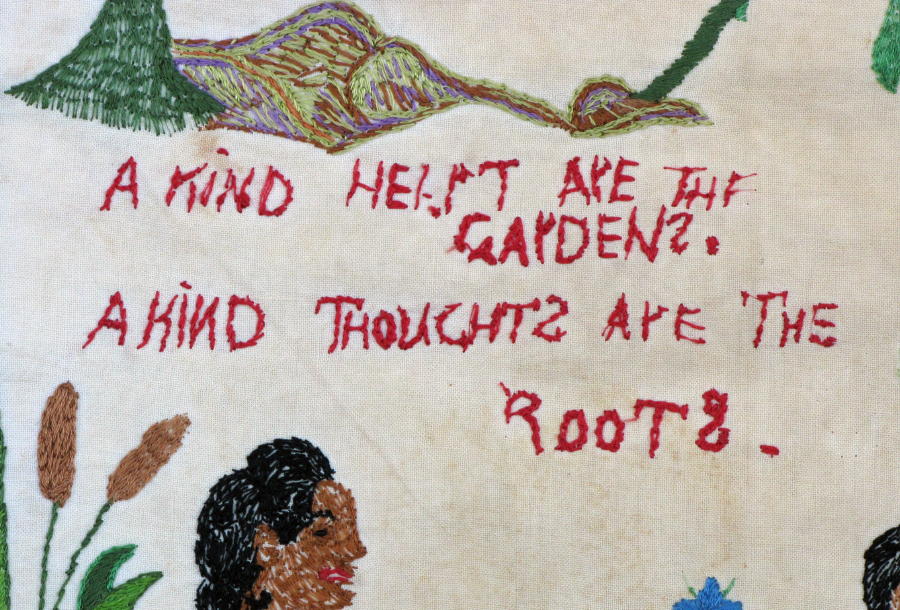 A KIND HEART ARE THE
GARDENS.
A KIND THOUGHTS ARE THE
ROOTS.